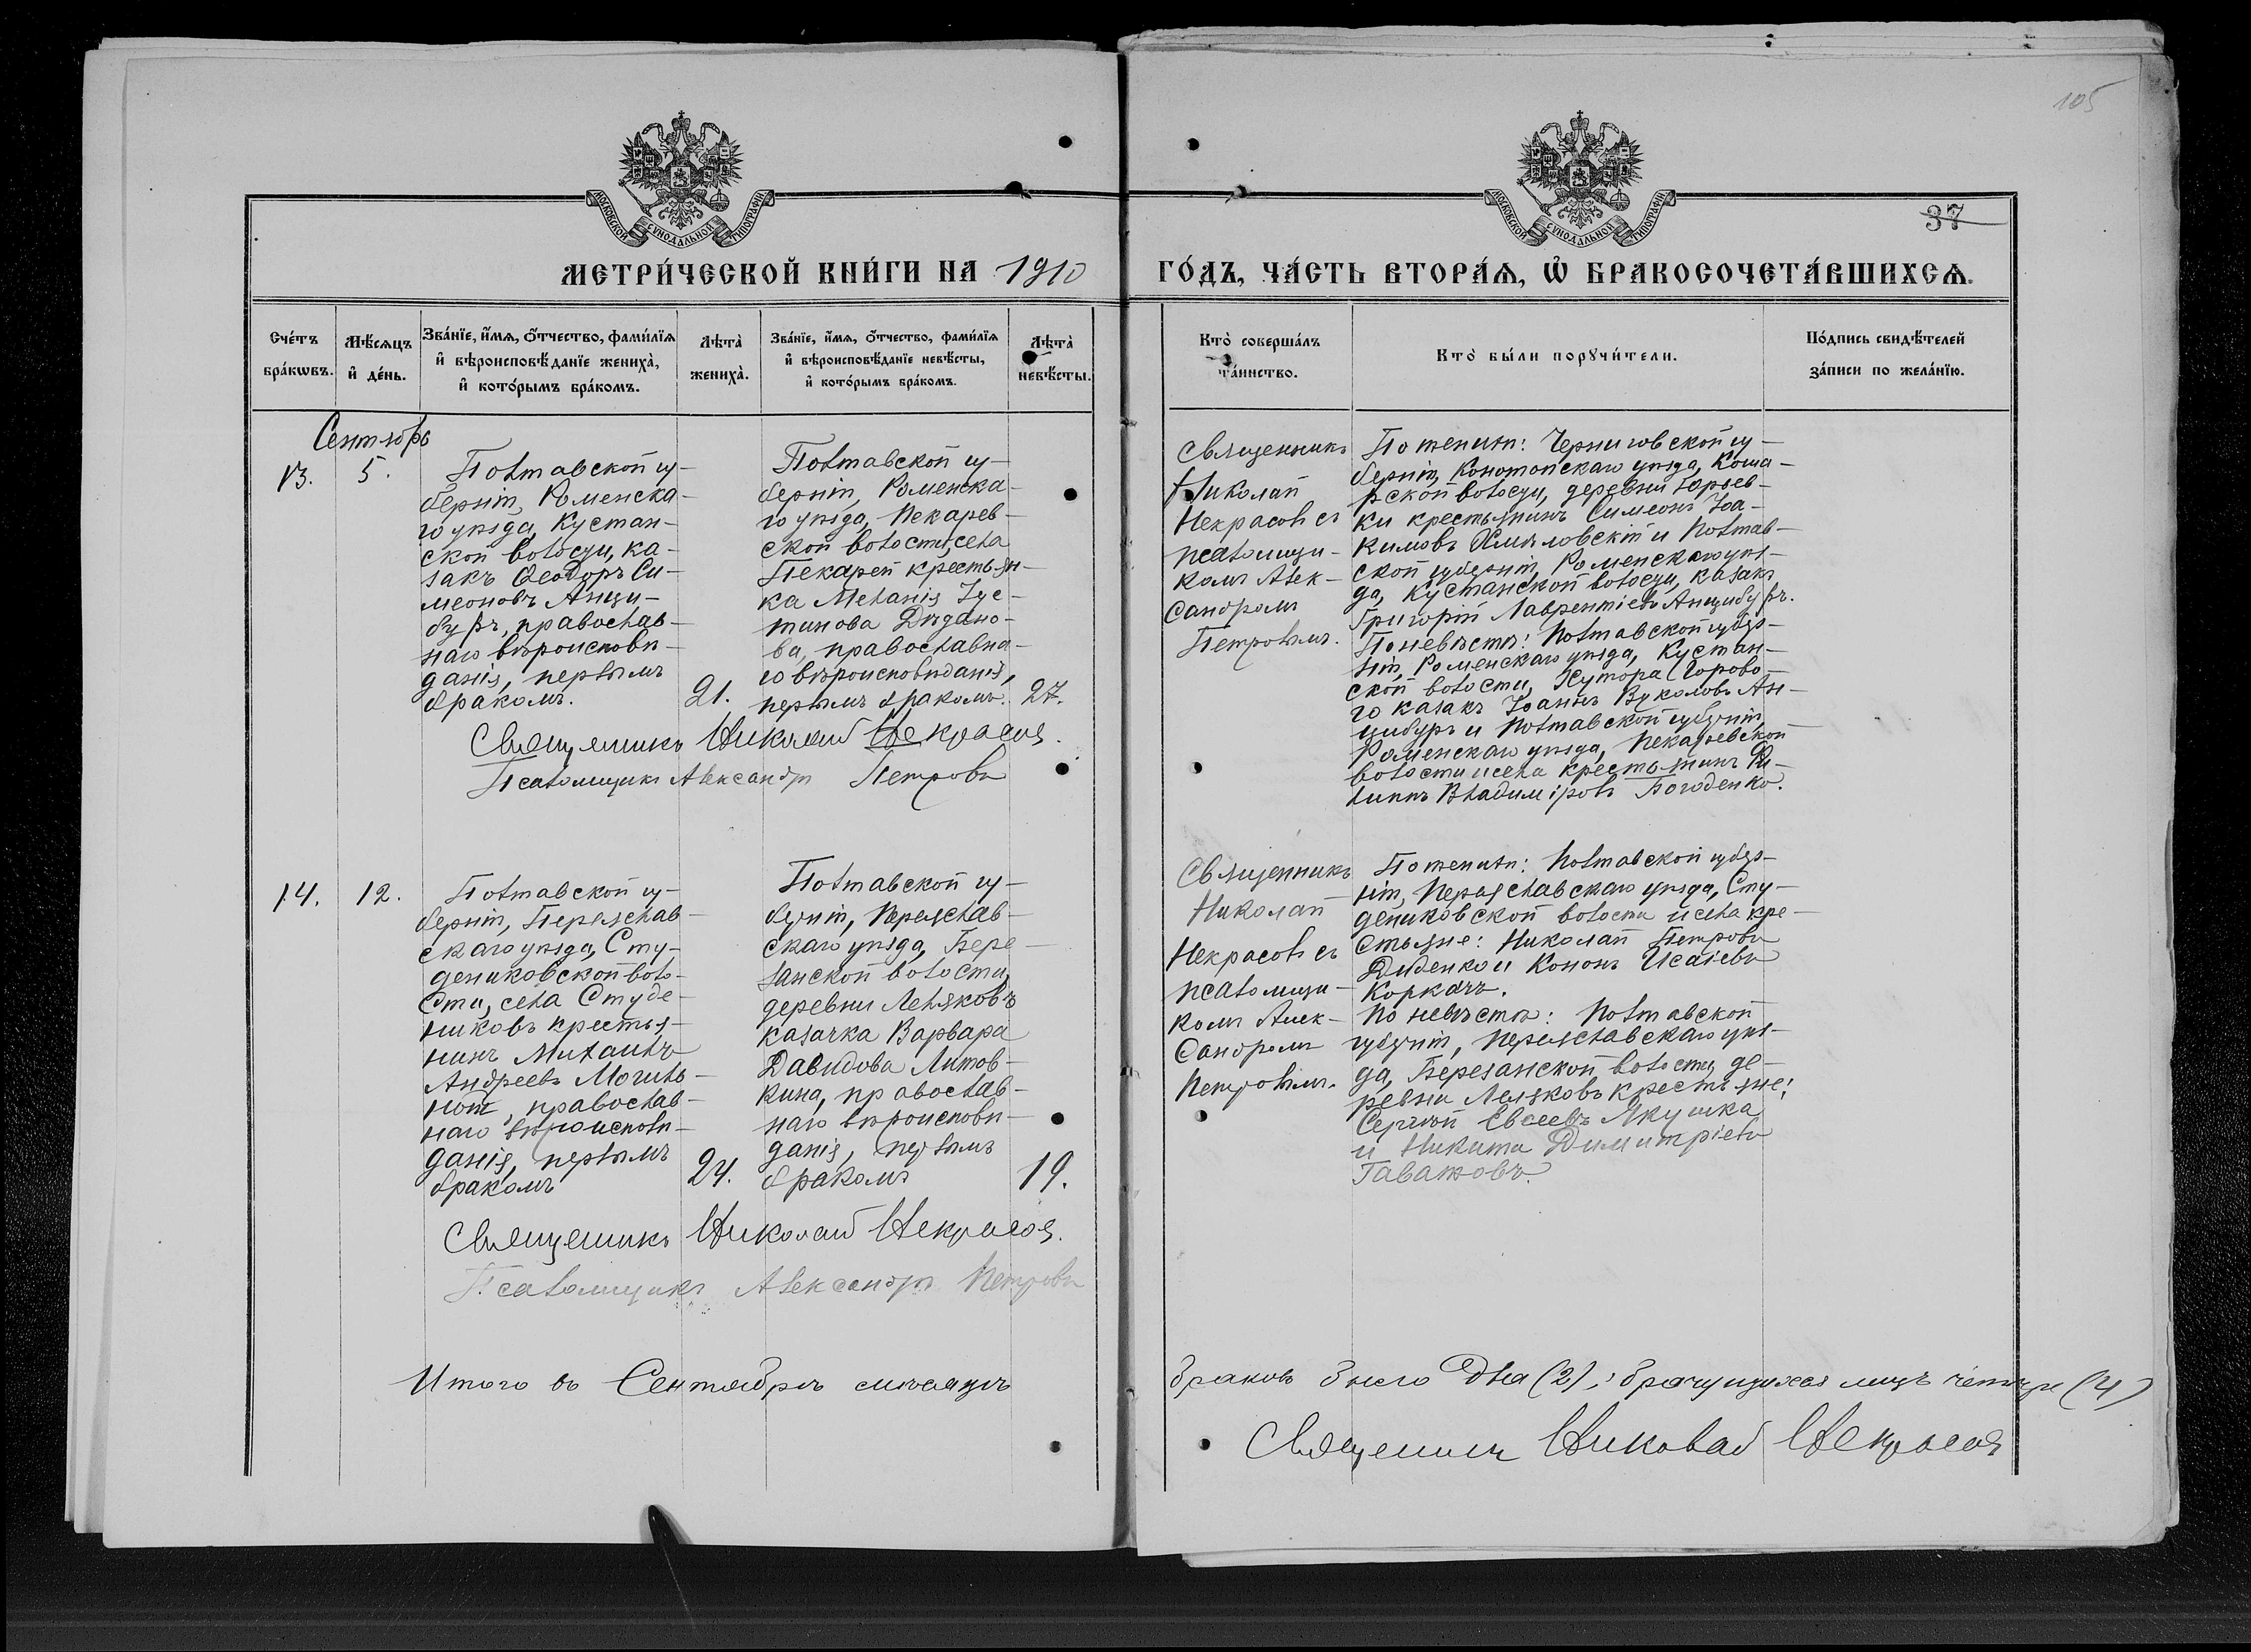 105
МОСКОВСКОЙ СѴНОДАЛЬНОЙ ТИПОГРАФІИ
МОСКОВСКОЙ СѴНОДАЛЬНОЙ ТИПОГРАФІИ
37
МЕТРИ́ЧЕСКОЙ КНИ́ГИ НА 1910
ГО́ДЪ, ЧА́СТЬ ВТОРА́Я, Ѡ҆ БРАКОСОЧЕТА́ВШИХСѦ.
Сче́тъ
бра́кѡвъ.
Мѣ́сяцъ
и҆ де́нь.
Зва́нїе, и҆́мѧ, ѻ҆́тчество, фами́лїѧ
и҆ вѣроисповѣ́данїе жениха̀,
и҆ кото́рымъ бра́комъ.
Лѣта̀
жениха̀.
Зва́нїе, и҆́мѧ, ѻ҆́тчество, фами́лїѧ
и҆ вѣроисповѣ́данїе невѣ́сты,
и҆ кото́рымъ бра́комъ.
Лѣта̀
невѣ́сты.
Кто̀ соверша́лъ
та́инство.
Кто̀ бы́ли порꙋчи́тели.
По́дпись свидѣ́телей
за́писи по жела́нїю.
Сентябрь
13.
5.
Полтавской гу-
берніи, Роменска-
го уѣзда, Кустан-
ской волости, ка-
закъ Ѳеодоръ Си-
меоновъ Анци-
буръ, православ-
наго вѣроисповѣ-
данія, первымъ
бракомъ.
21.
Полтавской гу-
берніи, Роменска-
го уѣзда, Пекарев-
ской волости, села
Пекарей крестьян-
ка Меланія Іус-
тинова Дѣдано-
ва, православна-
го вѣроисповѣданія,
первымъ бракомъ.
27.
Священникъ Николай Некрасовъ.
Псаломщикъ Александръ Петровъ
Священникъ
Николай
Некрасовъ съ
псаломщи-
комъ Алек-
сандромъ
Петровымъ.
По женихѣ: Черниговской гу-
берніи, Конотопскаго уѣзда, Коша-
рской волости, деревни Юрьев-
ки крестьянинъ Симеонъ Іоа-
кимовъ Хмѣловскій и Полтав-
ской губерніи, Роменскаго уѣз-
да, Кустанской волости, казакъ
Григорій Лаврентіевъ Анцибуръ.
По невѣстѣ: Полтавской губер-
ніи, Роменскаго уѣзда, Кустан-
ской волости, Хутора Горово-
го казакъ Іоаннъ Вуколовъ Ан-
цибуръ и Полтавской губерніи,
Роменскаго уѣзда, Пекаревской
волости и села крестьянинъ Фи-
липпъ Владиміровъ Погоденко.
14.
12.
Полтавской гу-
берніи, Переяслав-
скаго уѣзда, Сту-
дениковской воло-
сти, села Студе-
никовъ крестья-
нинъ Михаилъ
Андреевъ Могиль-
ной, православ-
наго вѣроисповѣ-
данія, первымъ
бракомъ
24.
Полтавской гу-
берніи, Переяслав-
скаго уѣзда, Бере-
занской волости,
деревни Леляковъ
казачка Варвара
Давидова Литов-
кина, православ-
наго вѣроисповѣ-
данія, первымъ
бракомъ
19.
Священникъ Николай Некрасовъ.
Псаломщикъ Александръ Петровъ
Священникъ
Николай
Некрасовъ съ
псаломщи-
комъ Алек-
сандромъ
Петровымъ.
По женихѣ: Полтавской губер-
ніи, Переяславскаго уѣзда, Сту-
дениковской волости и села кре-
стьяне: Николай Петровъ
Диденко и Кононъ Исаіевъ
Коркачъ.
По невѣстѣ: Полтавской
губерніи, Переяславскаго уѣз-
да, Березанской волости, де-
ревни Леляковъ крестьяне:
Сергѣй Евсеевъ Якушка
и Никита Димитріевъ
Гаватовъ.
Итого въ Сентябрѣ мѣсяцѣ
браковъ было два (2), брачущихся лицъ четыре (4)
Священникъ Николай Некрасовъ